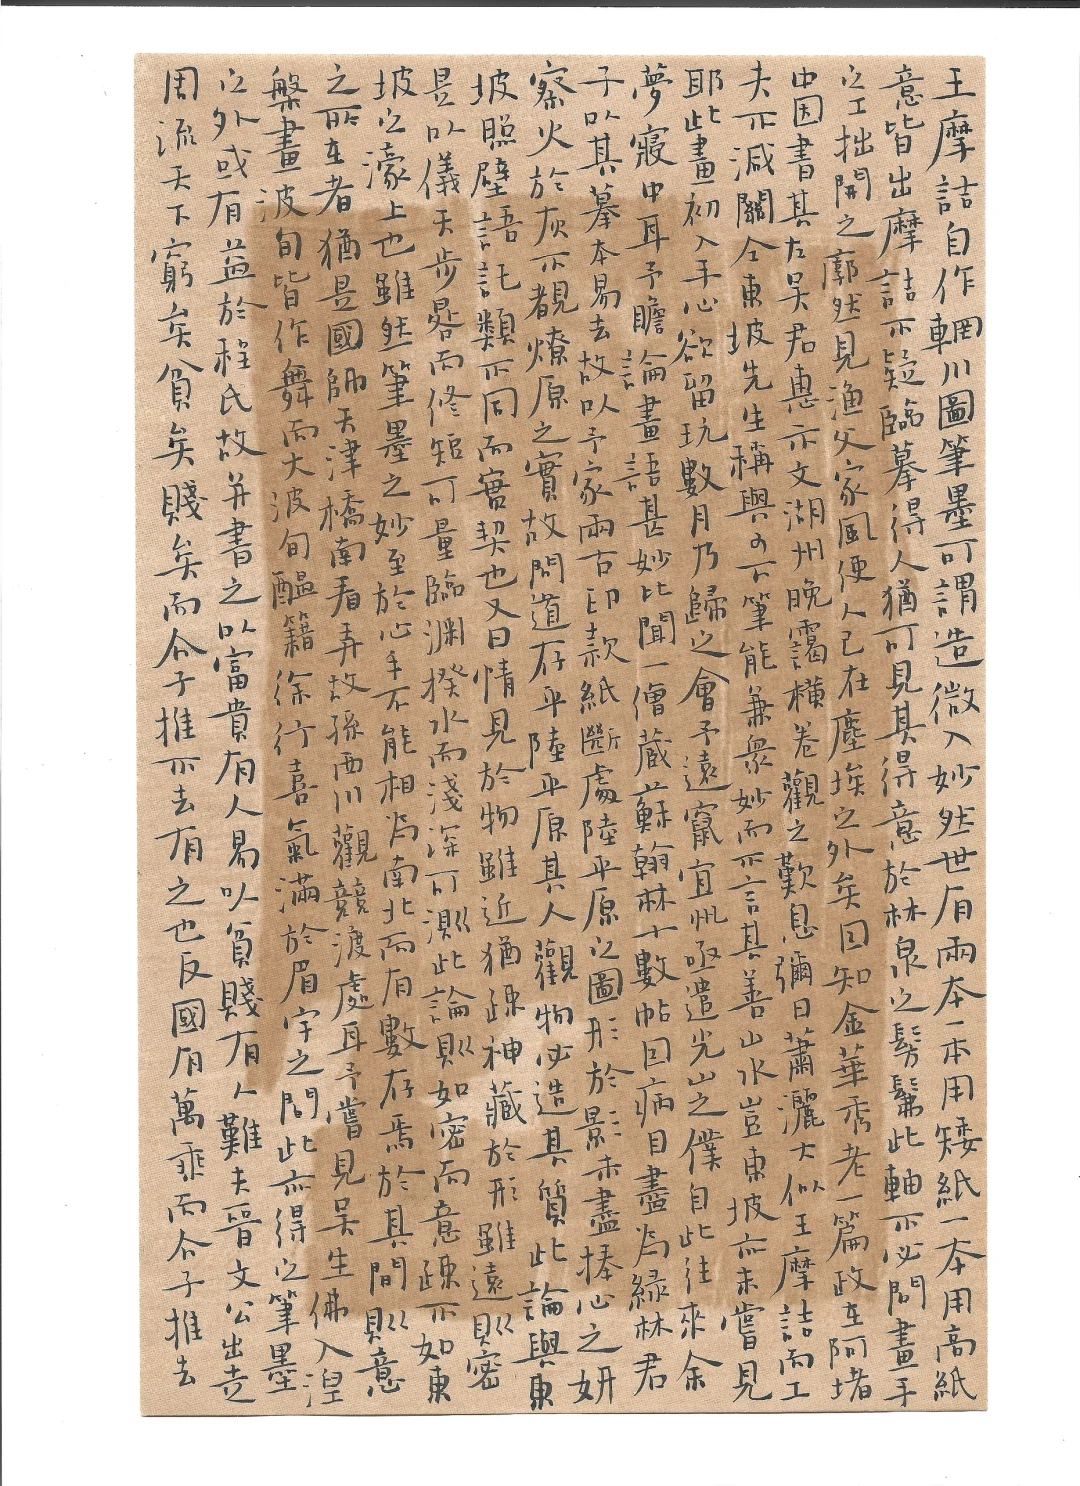 王摩詰自作輞川圖筆墨可謂造微入妙然世有兩本一本用矮紙一本用高紙
意皆出摩詰不疑臨摹得人猶可見其得意於林泉之髣髴此軸不必問畫手
之工拙開之廓然見漁父家風便人已在塵埃之外矣因知金華秀老一篇政在阿堵
中因書其左吳君惠示文湖州晚靄橫卷觀之歎息彌日蕭灑大似王摩詰而工
夫不減關仝東坡先生稱與可下筆能兼衆妙而不言其善山水豈東坡亦未嘗見
耶此畫初入手心欲留玩數月乃歸之會予遠竄宜州亟遣光山之僕自此往來余
夢寢中耳予瞻論畫語甚妙比聞一僧藏蘇翰林十數帖因病目盡為綠林君
子以其摹本易去故以予家兩古印款紙斷處陸平原之圖形於影未盡捧心之妍
察火於灰不覩燎原之實故問道存乎陸平原其人觀物必造其質此論與東
坡照壁語託類不同而實契也又曰情見於物雖近猶疎神藏於形雖遠則密
是以儀天步晷而修短可量臨淵揆水而淺深可測此論則如密而意疎不如東
坡之濠上也雖然筆墨之妙至於心手不能相為南北而有數存焉於其間則意
之所在者猶是國師天津橋南看弄故孫西川觀競渡處耳予嘗見吳生佛入涅
槃畫波旬皆作舞而大波旬醞籍徐行喜氣滿於眉宇之間此亦得之筆墨
之外或有益於程氏故并書之以富貴有人易以貧賤有人難夫晉文公出走
周流天下窮矣貧矣賤矣而介子推不去有之也反國有萬乘而介子推去